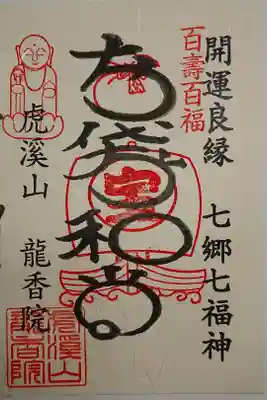 開運良縁 七郷七福神
百壽百福
布袋和尚
虎溪山 龍香院
虎溪山
龍香院